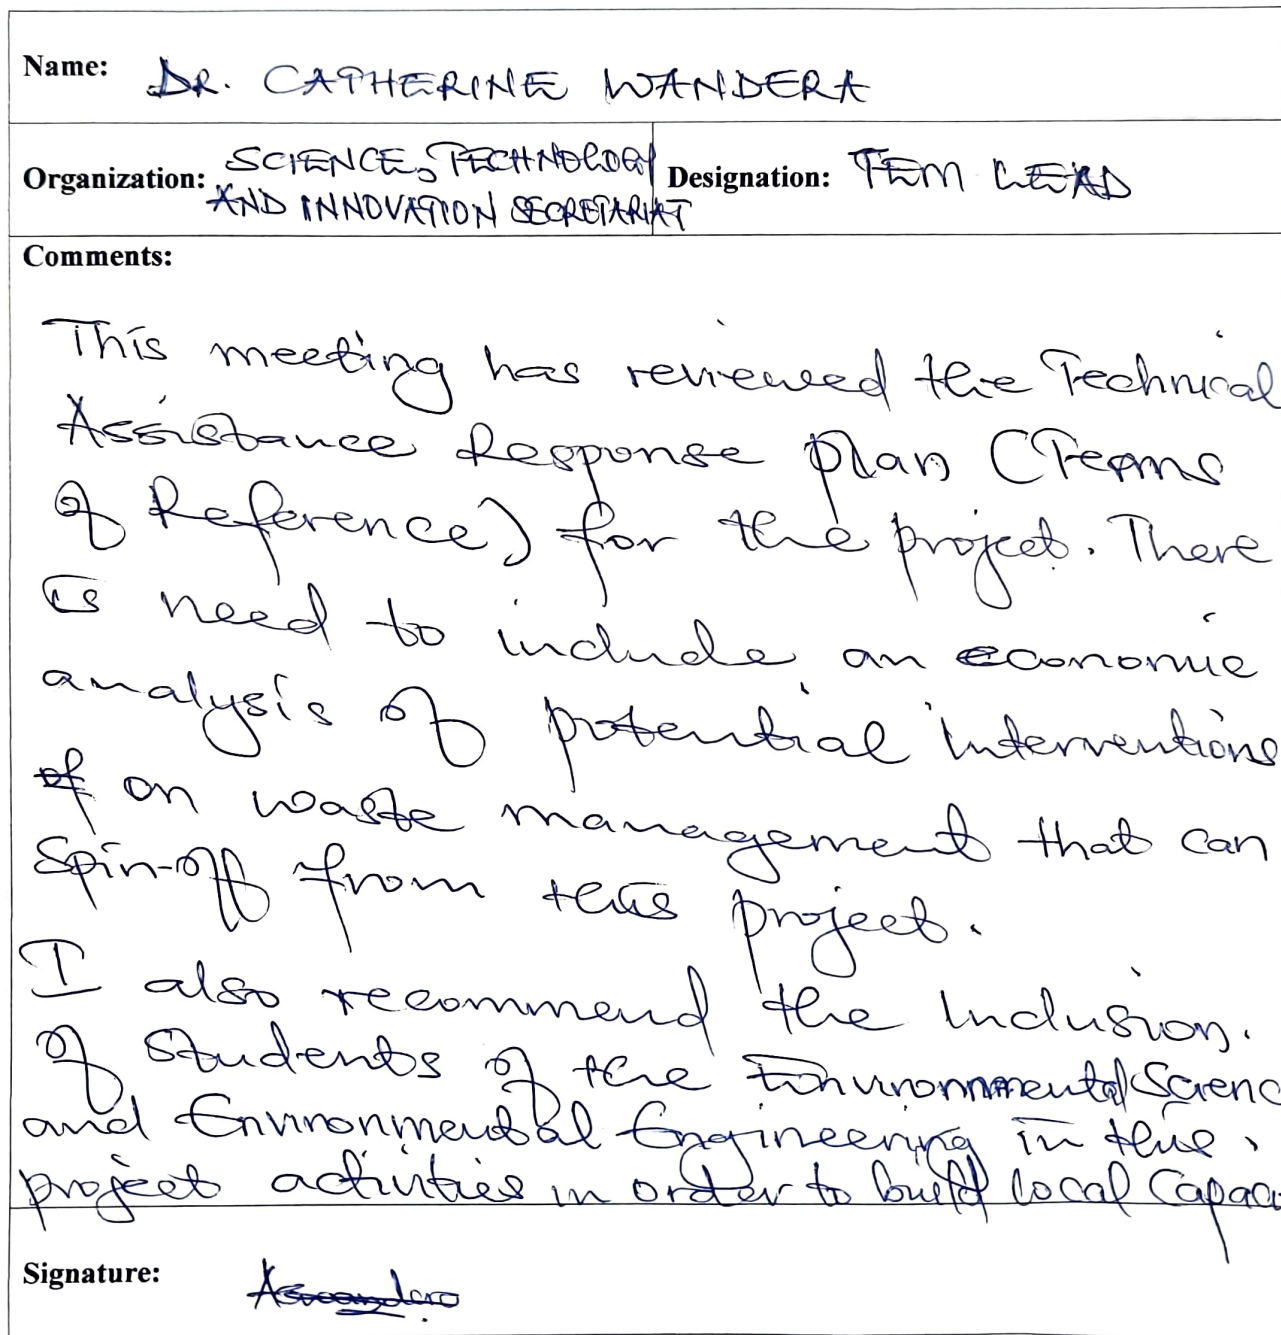 Name: DR. CATHERINE WANDERA
Organization: SCIENCE, TECHNOLOGY
AND INNOVATION SECRETARIAT
Designation: TEM LEAD
Comments:
This meeting has reviewed the Technical
Assistance Response plan (Terms
of Reference) for the project. There
is need to include an economic
analysis of potential interventions
of on waste management that can
Spin-off from this project.
I also recommend the Inclusion.
of Students of the Environmental Scienc
and Environmental Engineering in the
project activities in order to build local Capac
Signature: